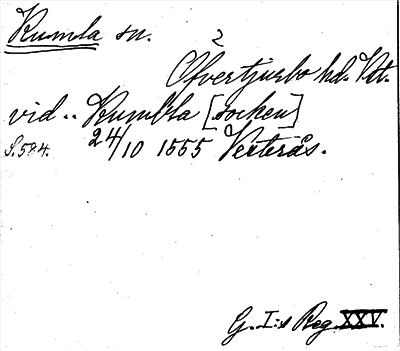 Kumla sn.
2
Öfvertjurbo hd. Vstm.
vid .. Kumbla [socken]
S. 584. 24/10 1555 Vesterås.
G. I:s Reg. XXV.